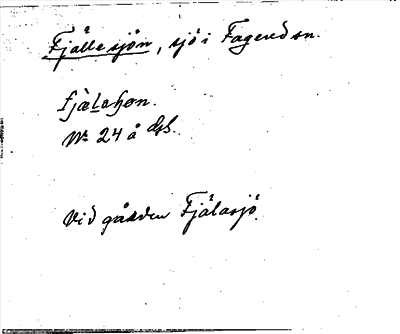 Fjällesjön, sjö i Fagered sn.
fjælaʃɷn.
No 24 å dsS.
Vid gården Fjälasjö.